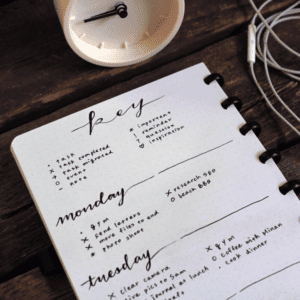 key
· task
x task completed
> task migrated
o event
- note
* important
! reminder
? question
♡ inspiration
monday
· gym
x send letters
x move files to end
* photo shoot
x research SEO
o beach BBQ
tuesday
x clear camera
give pics to Sam
journal at lunch
x gym
o coffee with Minah
· cook dinner